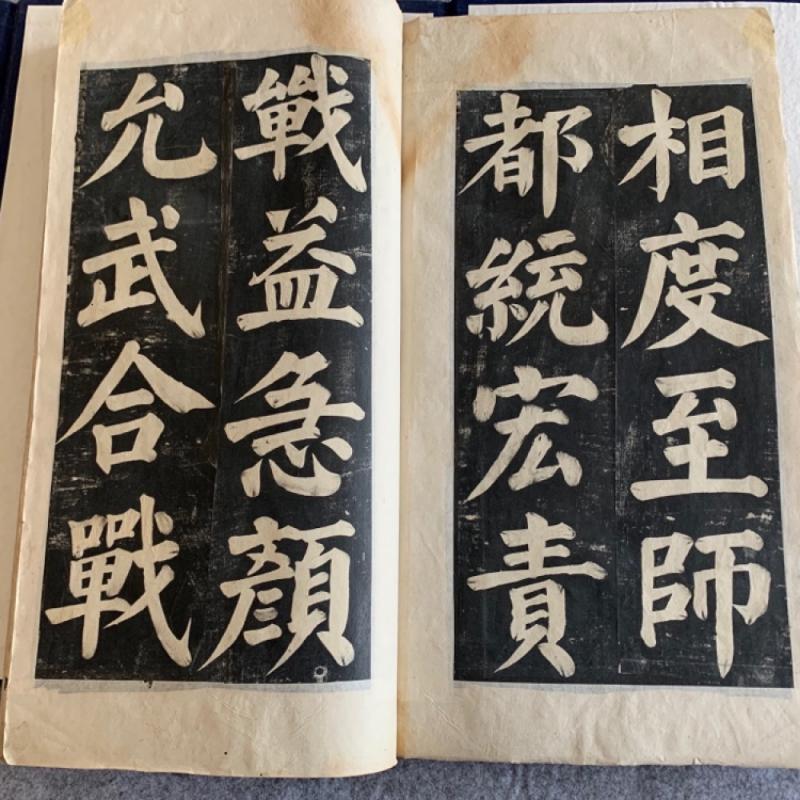 相度至師
都統宏責
戰益急顔
允武合戰